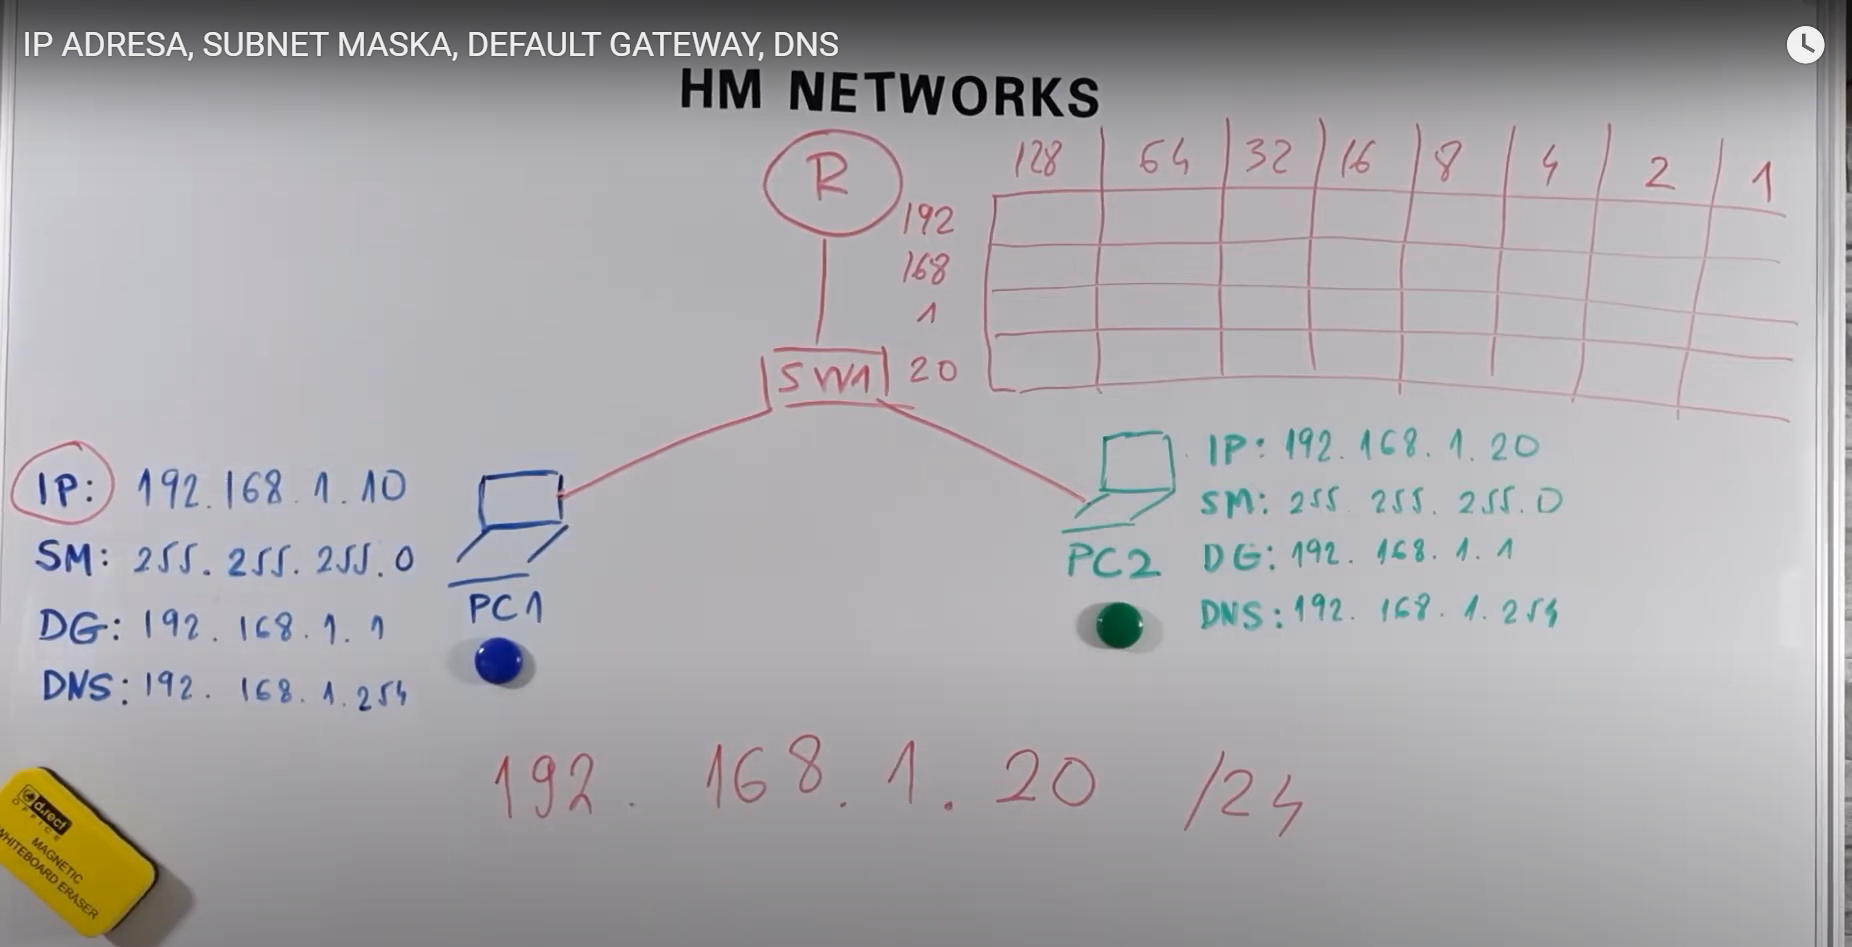 IP ADRESA, SUBNET MASKA, DEFAULT GATEWAY, DNS
HM NETWORKS
R
128 64 32 16 8 4 2 1
192
168
1
20
SW1
IP: 192.168.1.10
SM: 255.255.255.0
DG: 192.168.1.1
DNS: 192.168.1.254
PC1
IP: 192.168.1.20
SM: 255.255.255.0
DG: 192.168.1.1
DNS: 192.168.1.254
PC2
192.168.1.20 /24
d.rect
OFFICE
MAGNETIC
WHITEBOARD ERASER